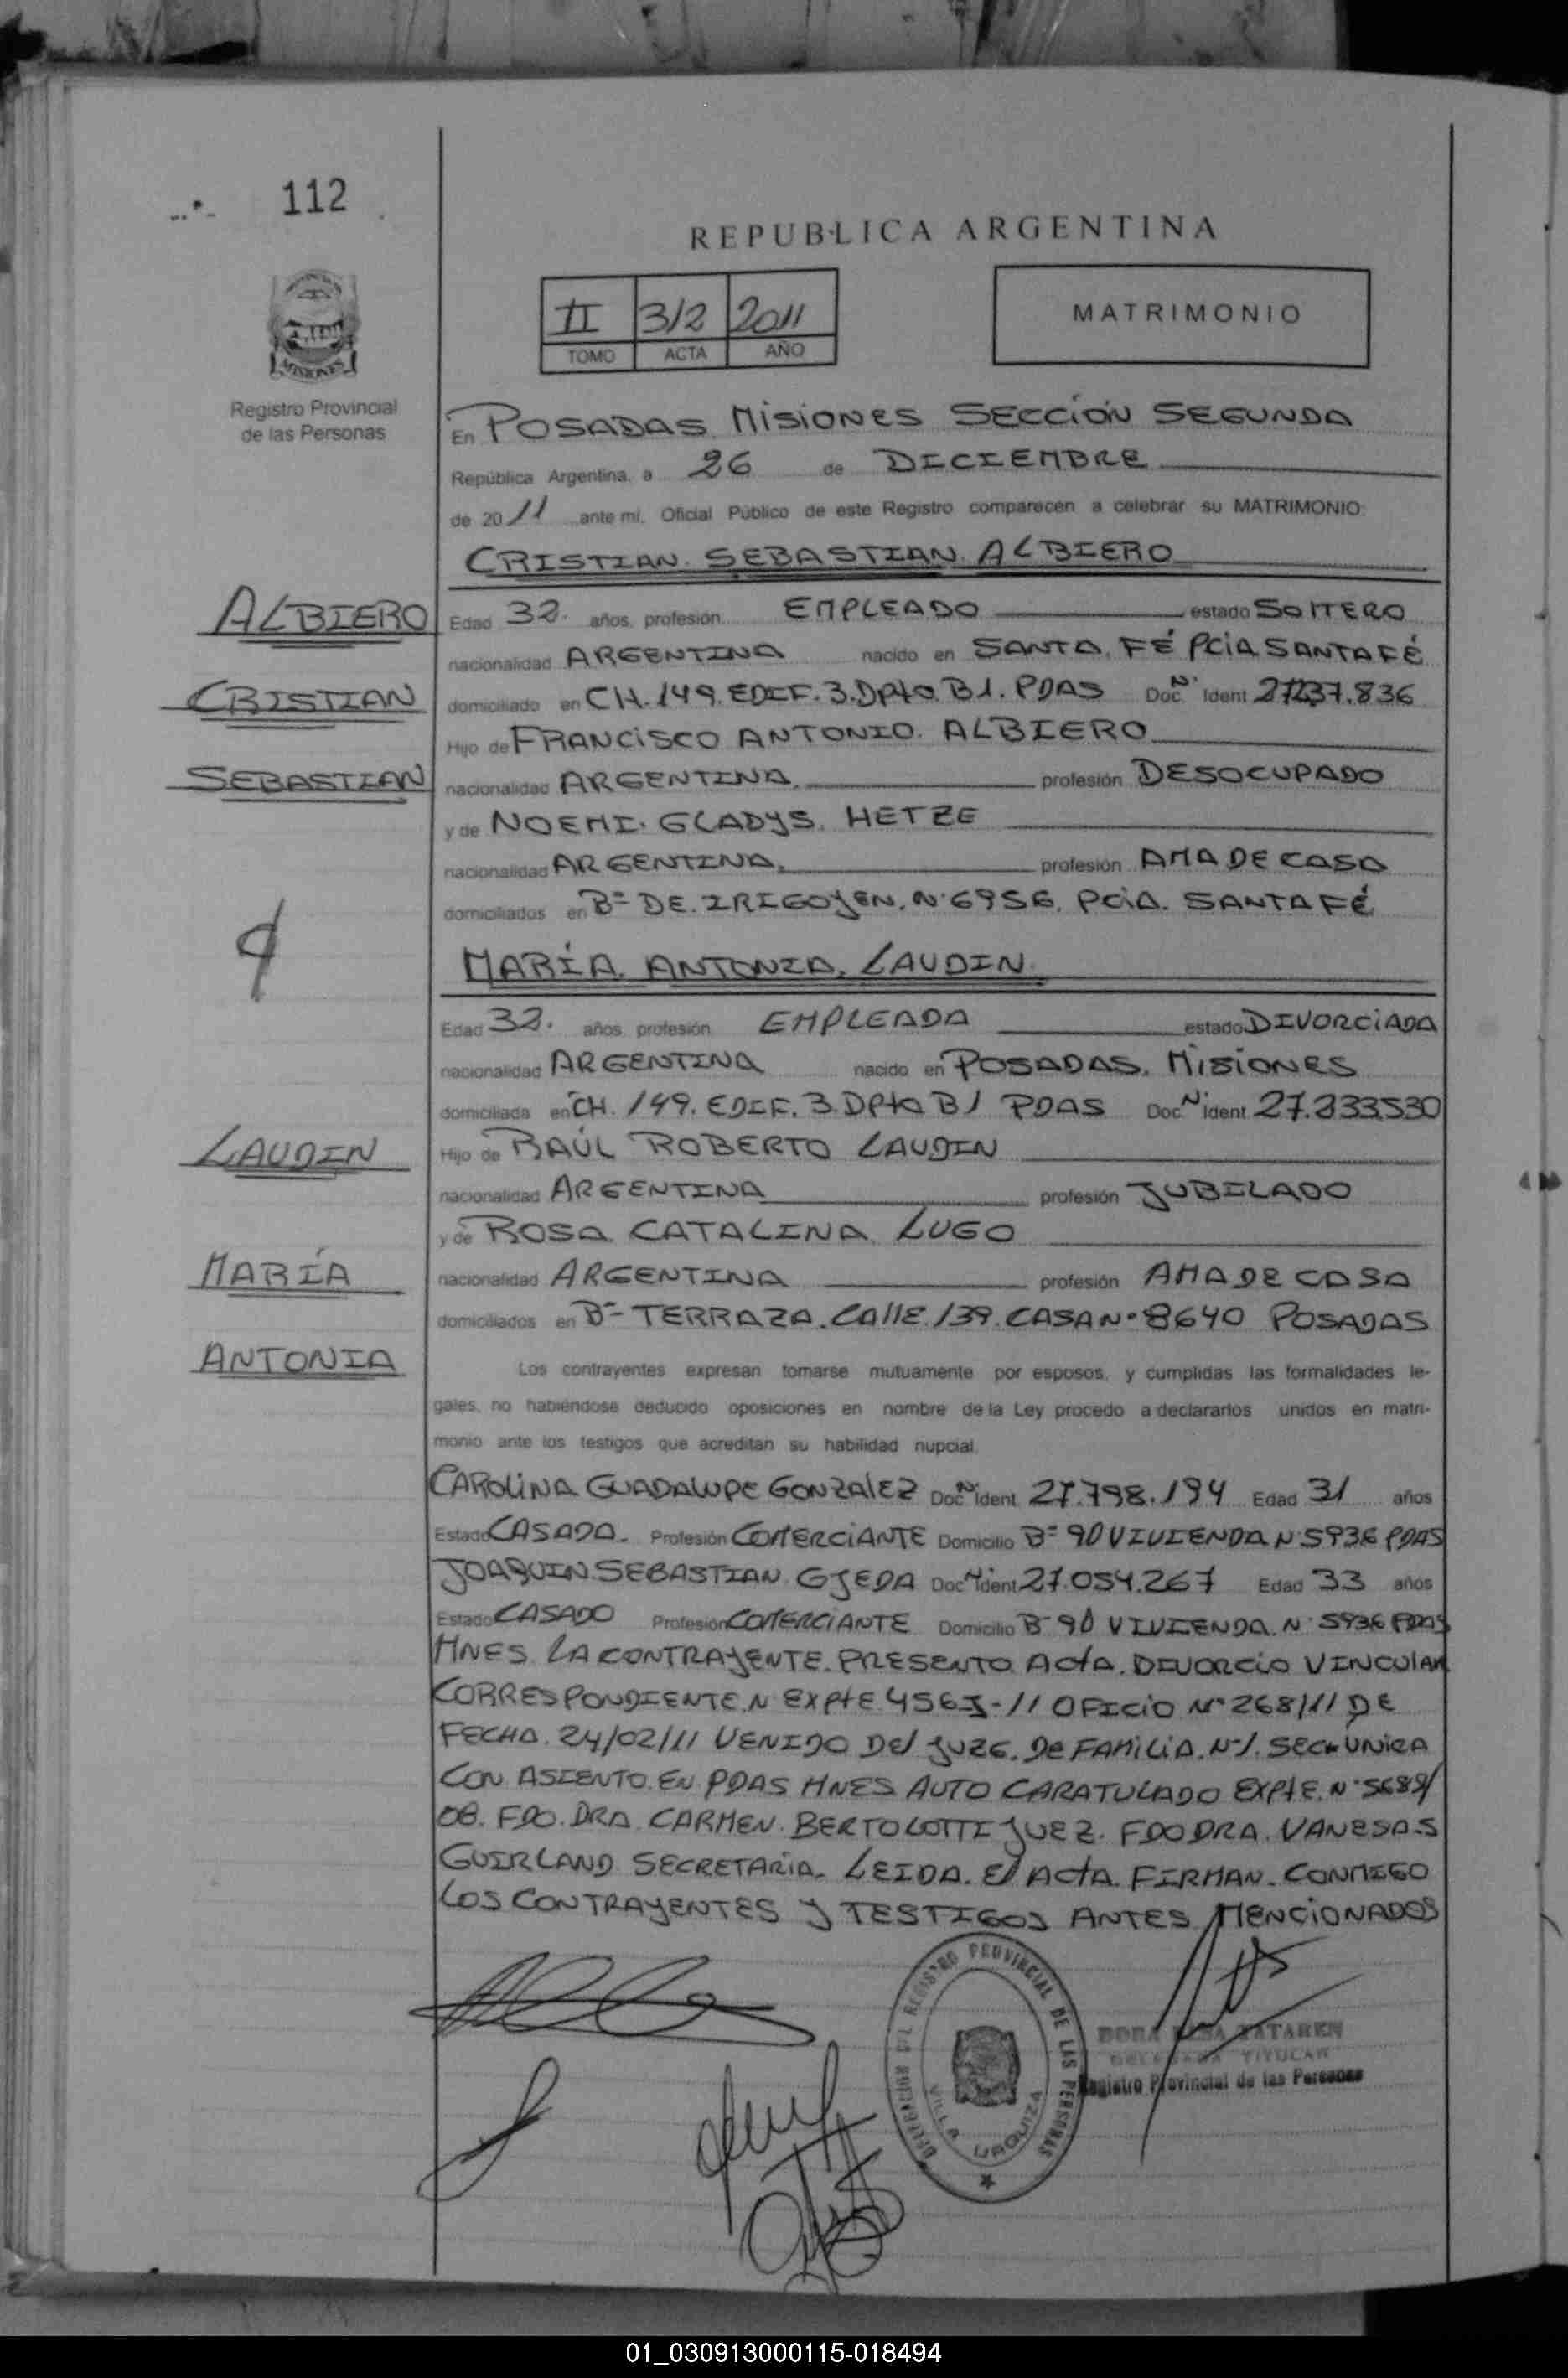 112
REPUBLICA ARGENTINA
II 312 2011
TOMO ACTA AÑO
MATRIMONIO
MISIONES
Registro Provincial
de las Personas
En POSADAS MISIONES SECCIÓN SEGUNDA
República Argentina, a 26 de DICIEMBRE
de 2011 ante mi, Oficial Público de este Registro comparecen a celebrar su MATRIMONIO:
CRISTIAN. SEBASTIAN. ALBIERO
ALBIERO
Edad 32. años, profesión EMPLEADO estado SOLTERO
nacionalidad ARGENTINA nacido en SANTA. FÉ PCIA SANTA FÉ
CRISTIAN
domiciliado en CH. 149. EDIF. 3. DPtO. B1. PDAS Doc. N° Ident 27.237.836
Hijo de FRANCISCO ANTONIO. ALBIERO
SEBASTIAN
nacionalidad ARGENTINA. profesión DESOCUPADO
y de NOEMI. GLADYS. HETZE
nacionalidad ARGENTINA. profesión AMA DE CASA
domiciliados en B= DE. IRIGOYEN. N° 6956. PCIA. SANTA FÉ
MARÍA. ANTONIA. LAUDIN.
Edad 32. años, profesión EMPLEADA estado DIVORCIADA
nacionalidad ARGENTINA nacido en POSADAS. MISIONES
domiciliada en CH. 149. EDIF. 3. DPtO B1 PDAS Doc N° Ident. 27.333.530
LAUDIN
Hijo de RAÚL ROBERTO LAUDIN
nacionalidad ARGENTINA profesión JUBILADO
y de ROSA CATALINA LUGO
MARÍA
nacionalidad ARGENTINA profesión AMA DE CASA
domiciliados en B- TERRAZA. CALLE. 139. CASA N° 8640 POSADAS
ANTONIA
Los contrayentes expresan tomarse mutuamente por esposos, y cumplidas las formalidades le-
gales, no habiéndose deducido oposiciones en nombre de la Ley procedo a declararlos unidos en matri-
monio ante los testigos que acreditan su habilidad nupcial.
CAROLINA GUADALUPE GONZALEZ Doc N° Ident. 27.798.194 Edad 31 años
Estado CASADA. Profesión COMERCIANTE Domicilio B= 90 VIVIENDA N° 5936 PDAS
JOAQUIN SEBASTIAN OJEDA Doc N° Ident 27.054.267 Edad 33 años
Estado CASADO Profesión COMERCIANTE Domicilio B- 90 VIVIENDA. N° 5936 PDAS
MNES. LA CONTRAYENTE. PRESENTO ACtA. DIVORCIO VINCULAR
CORRESPONDIENTE. N° EXPtE OFICIO N° 268/11 DE
FECHA. 24/02/11 VENIDO DEL JUZG. DE FAMILIA. N-1. SEC. UNICA
CON ASIENTO. EN PDAS MNES AUTO CARATULADO EXPtE. N° 5689/
08. FDO. DRA. CARMEN. BERTOLOTTI JUEZ. FDO DRA. VANESA S
GUIRLAND SECRETARÍA. LEIDA. El ACtA. FIRMAN. CONMIGO
LOS CONTRAYENTES Y TESTIGOS ANTES MENCIONADOS
DELEGACION DEL REGISTRO PROVINCIAL DE LAS PERSONAS
VILLA URQUIZA
DORA TATAREN
DELEGADA TITULAR
Registro Provincial de las Personas
01_030913000115-018494